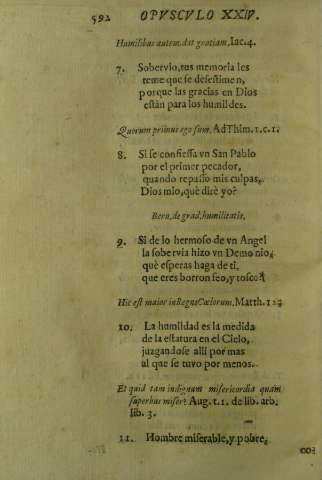 592 OPVSCVLO XXIV.
Humilibus autem dat gratiam, Iac. 4.
7. Sobervio, tus memoria les
teme que se desestimen,
porque las gracias en Dios
estàn para los humildes.
Quorum primus ego sum. Ad Thim. 1. c. 1.
8. Si se confiessa vn San Pablo
por el primer pecador,
quando repasso mis culpas,
Dios mio, què dirè yo?
Bern. de grad. humilitatis.
9. Si de lo hermoso de vn Angel
la sobervia hizo vn Demonio,
què esperas haga de ti,
que eres borron feo, y tosco?
Hic est maior in Regno Cœlorum. Matth. 18
10. La humildad es la medida
de la estatura en el Cielo,
juzgandose alli por mas
al que se tuvo por menos.
Et quid tam indignum misericordia quam
superbus miser? Aug. t. 1. de lib. arb.
lib. 3.
11. Hombre miserable, y pobre,